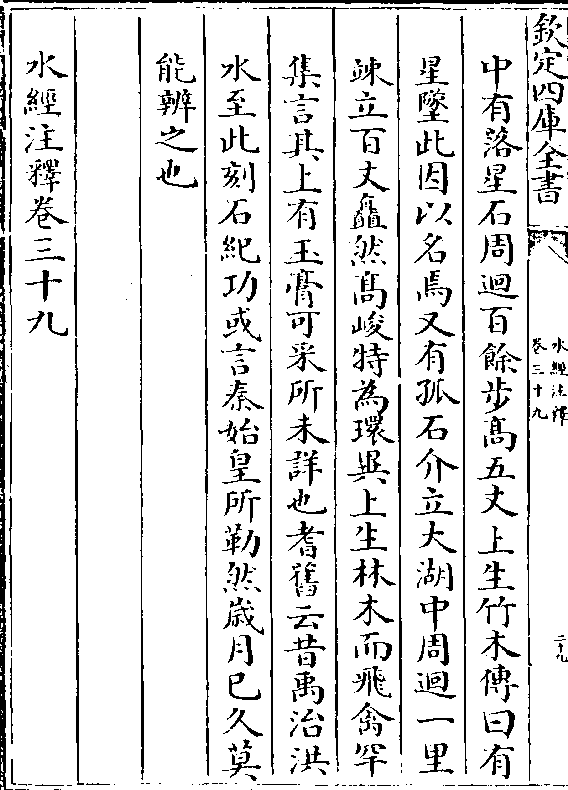 欽定四庫全書
水經注釋
卷三十九
二十九
中有落星石周迴百餘步髙五丈上生竹木傳曰有
星墜此因以名焉又有孤石介立大湖中周迴一里
竦立百丈矗然髙峻特為瓌異上生林木而飛禽罕
集言其上有玉膏可采所未詳也耆舊云昔禹治洪
水至此刻石紀功或言秦始皇所勒然歳月已久莫
能辨之也
水經注釋卷三十九